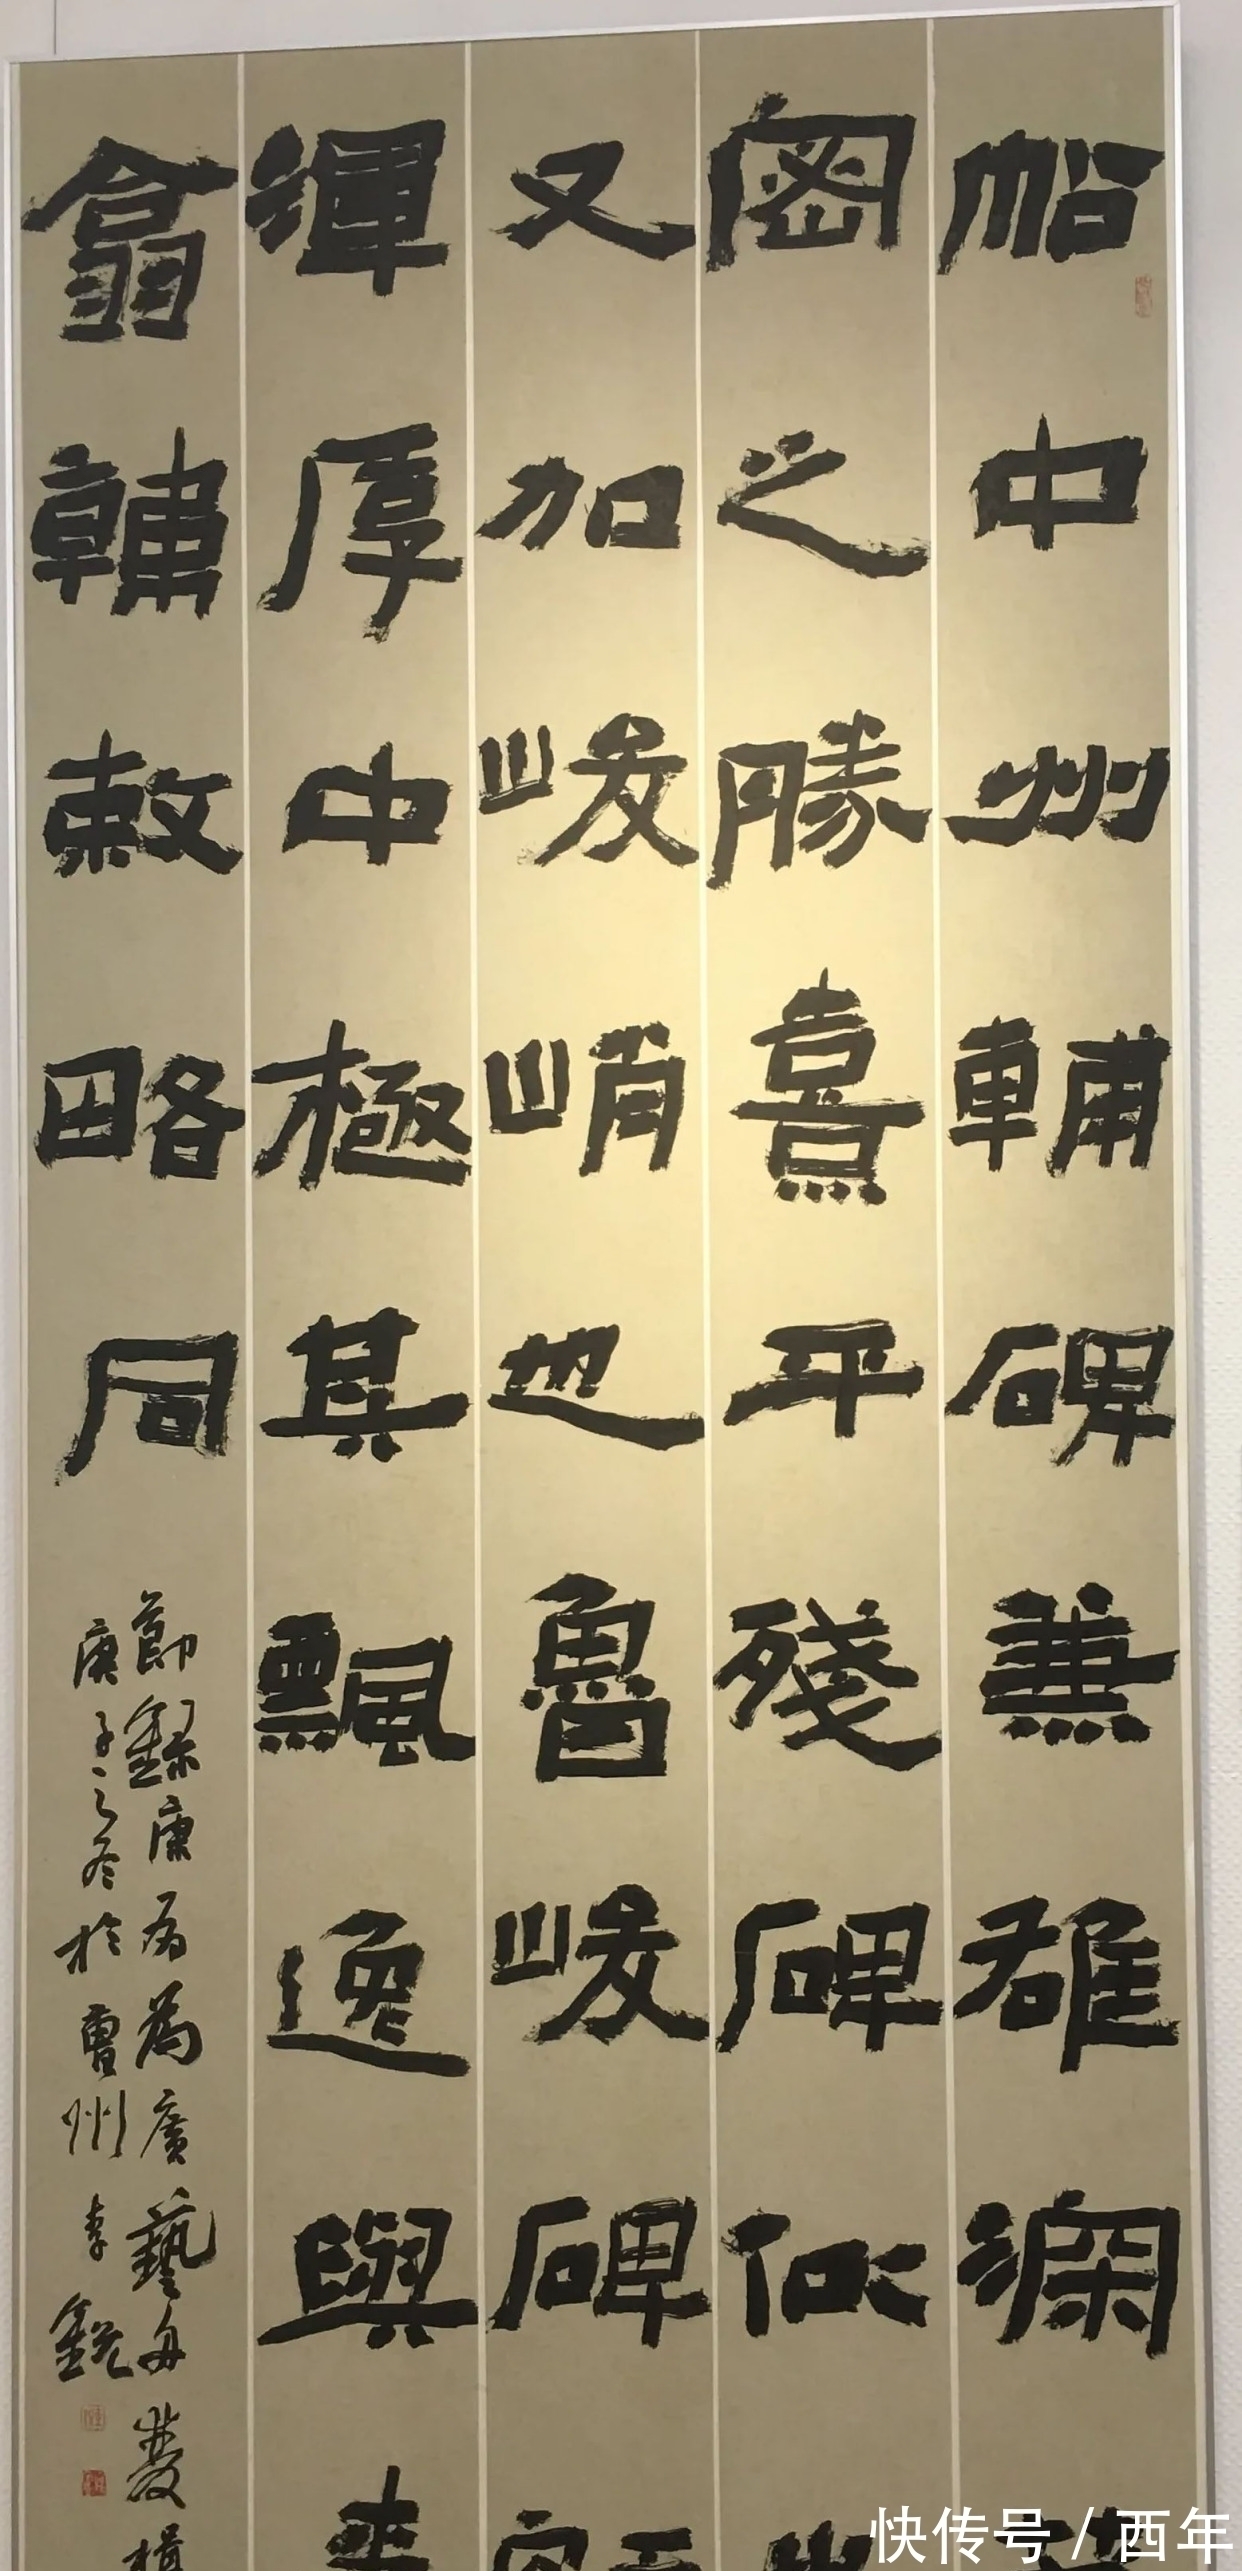 中州輔碑兼雄深
密之勝熹平殘碑似
又加峻峭也魯峻碑
渾厚中極其飄逸與
翕輔敕略同
節錄康有為廣藝舟雙楫
庚子之冬於曹州李銳
快传号 / 西年